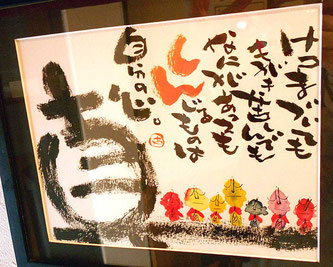 けつまづいても
もがき苦しんでも
なにがあっても
しんじるものは
自分の心。
真